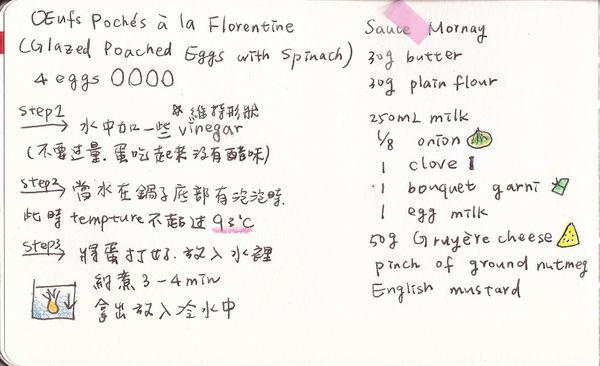 Œufs Pochés à la Florentine
(Glazed Poached Eggs with Spinach)
4 eggs
step1
※維持形狀
水中加一些 vinegar
(不要过量.蛋吃起來沒有醋味)
step2
當水在鍋子底部有泡泡時.
此時 tempture 不超过 93°C
step3
將蛋打好.放入水裡
約煮 3-4 min
拿出放入冷水中
Sauce Mornay
30g butter
30g plain flour
250mL milk
1/8 onion
1 clove
1 bouquet garni
1 egg milk
50g Gruyère cheese
pinch of ground nutmeg
English mustard